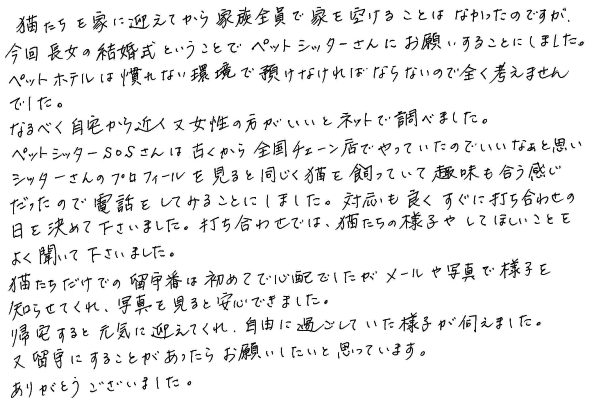 猫たちを家に迎えてから家族全員で家を空けることはなかったのですが、
今回長女の結婚式ということでペットシッターさんにお願いすることにしました。
ペットホテルは慣れない環境で預けなければならないので全く考えません
でした。
なるべく自宅から近く又女性の方がいいとネットで調べました。
ペットシッターSOSさんは古くから全国チェーン店でやっていたのでいいなぁと思い
シッターさんのプロフィールを見ると同じく猫を飼っていて趣味も合う感じ
だったので電話をしてみることにしました。対応も良くすぐに打ち合わせの
日を決めて下さいました。打ち合わせでは、猫たちの様子やしてほしいことを
よく聞いて下さいました。
猫たちだけでの留守番は初めてで心配でしたがメールや写真で様子を
知らせてくれ、写真を見ると安心できました。
帰宅すると元気に迎えてくれ、自由に過ごしていた様子が伺えました。
又留守にすることがあったらお願いしたいと思っています。
ありがとうございました。